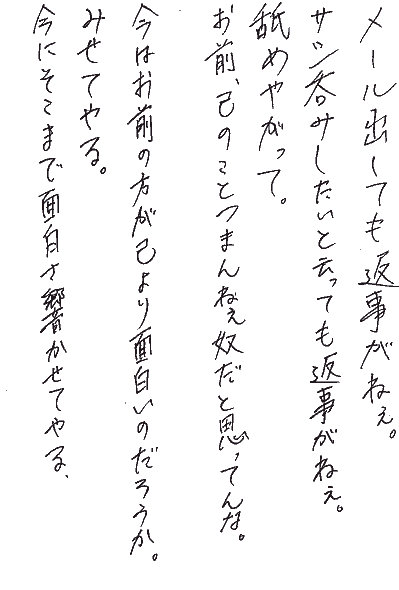 メール出しても返事がねぇ。
サシ呑みしたいと云っても返事がねぇ。
舐めやがって。
お前、己のことつまんねぇ奴だと思ってんな。
今はお前の方が己より面白いのだろうか。
みせてやる。
今にそこまで面白さ響かせてやる、